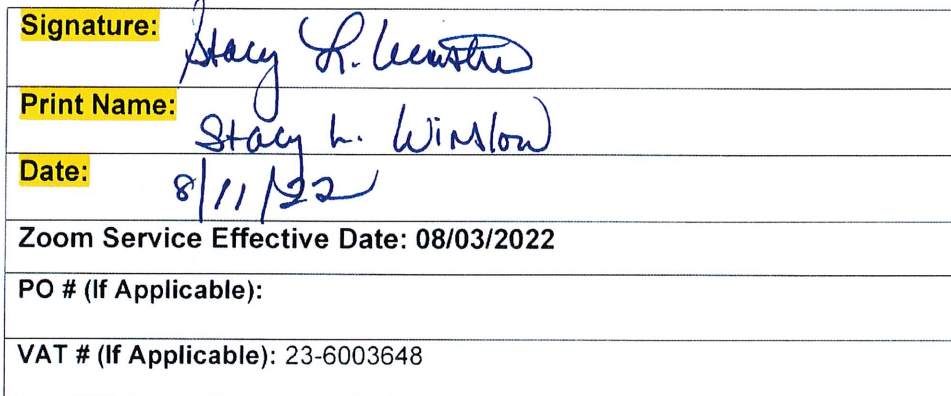 Signature: Stacy L. Winslow
Print Name: Stacy L. Winslow
Date: 8/11/22
Zoom Service Effective Date: 08/03/2022
PO # (If Applicable):
VAT # (If Applicable): 23-6003648